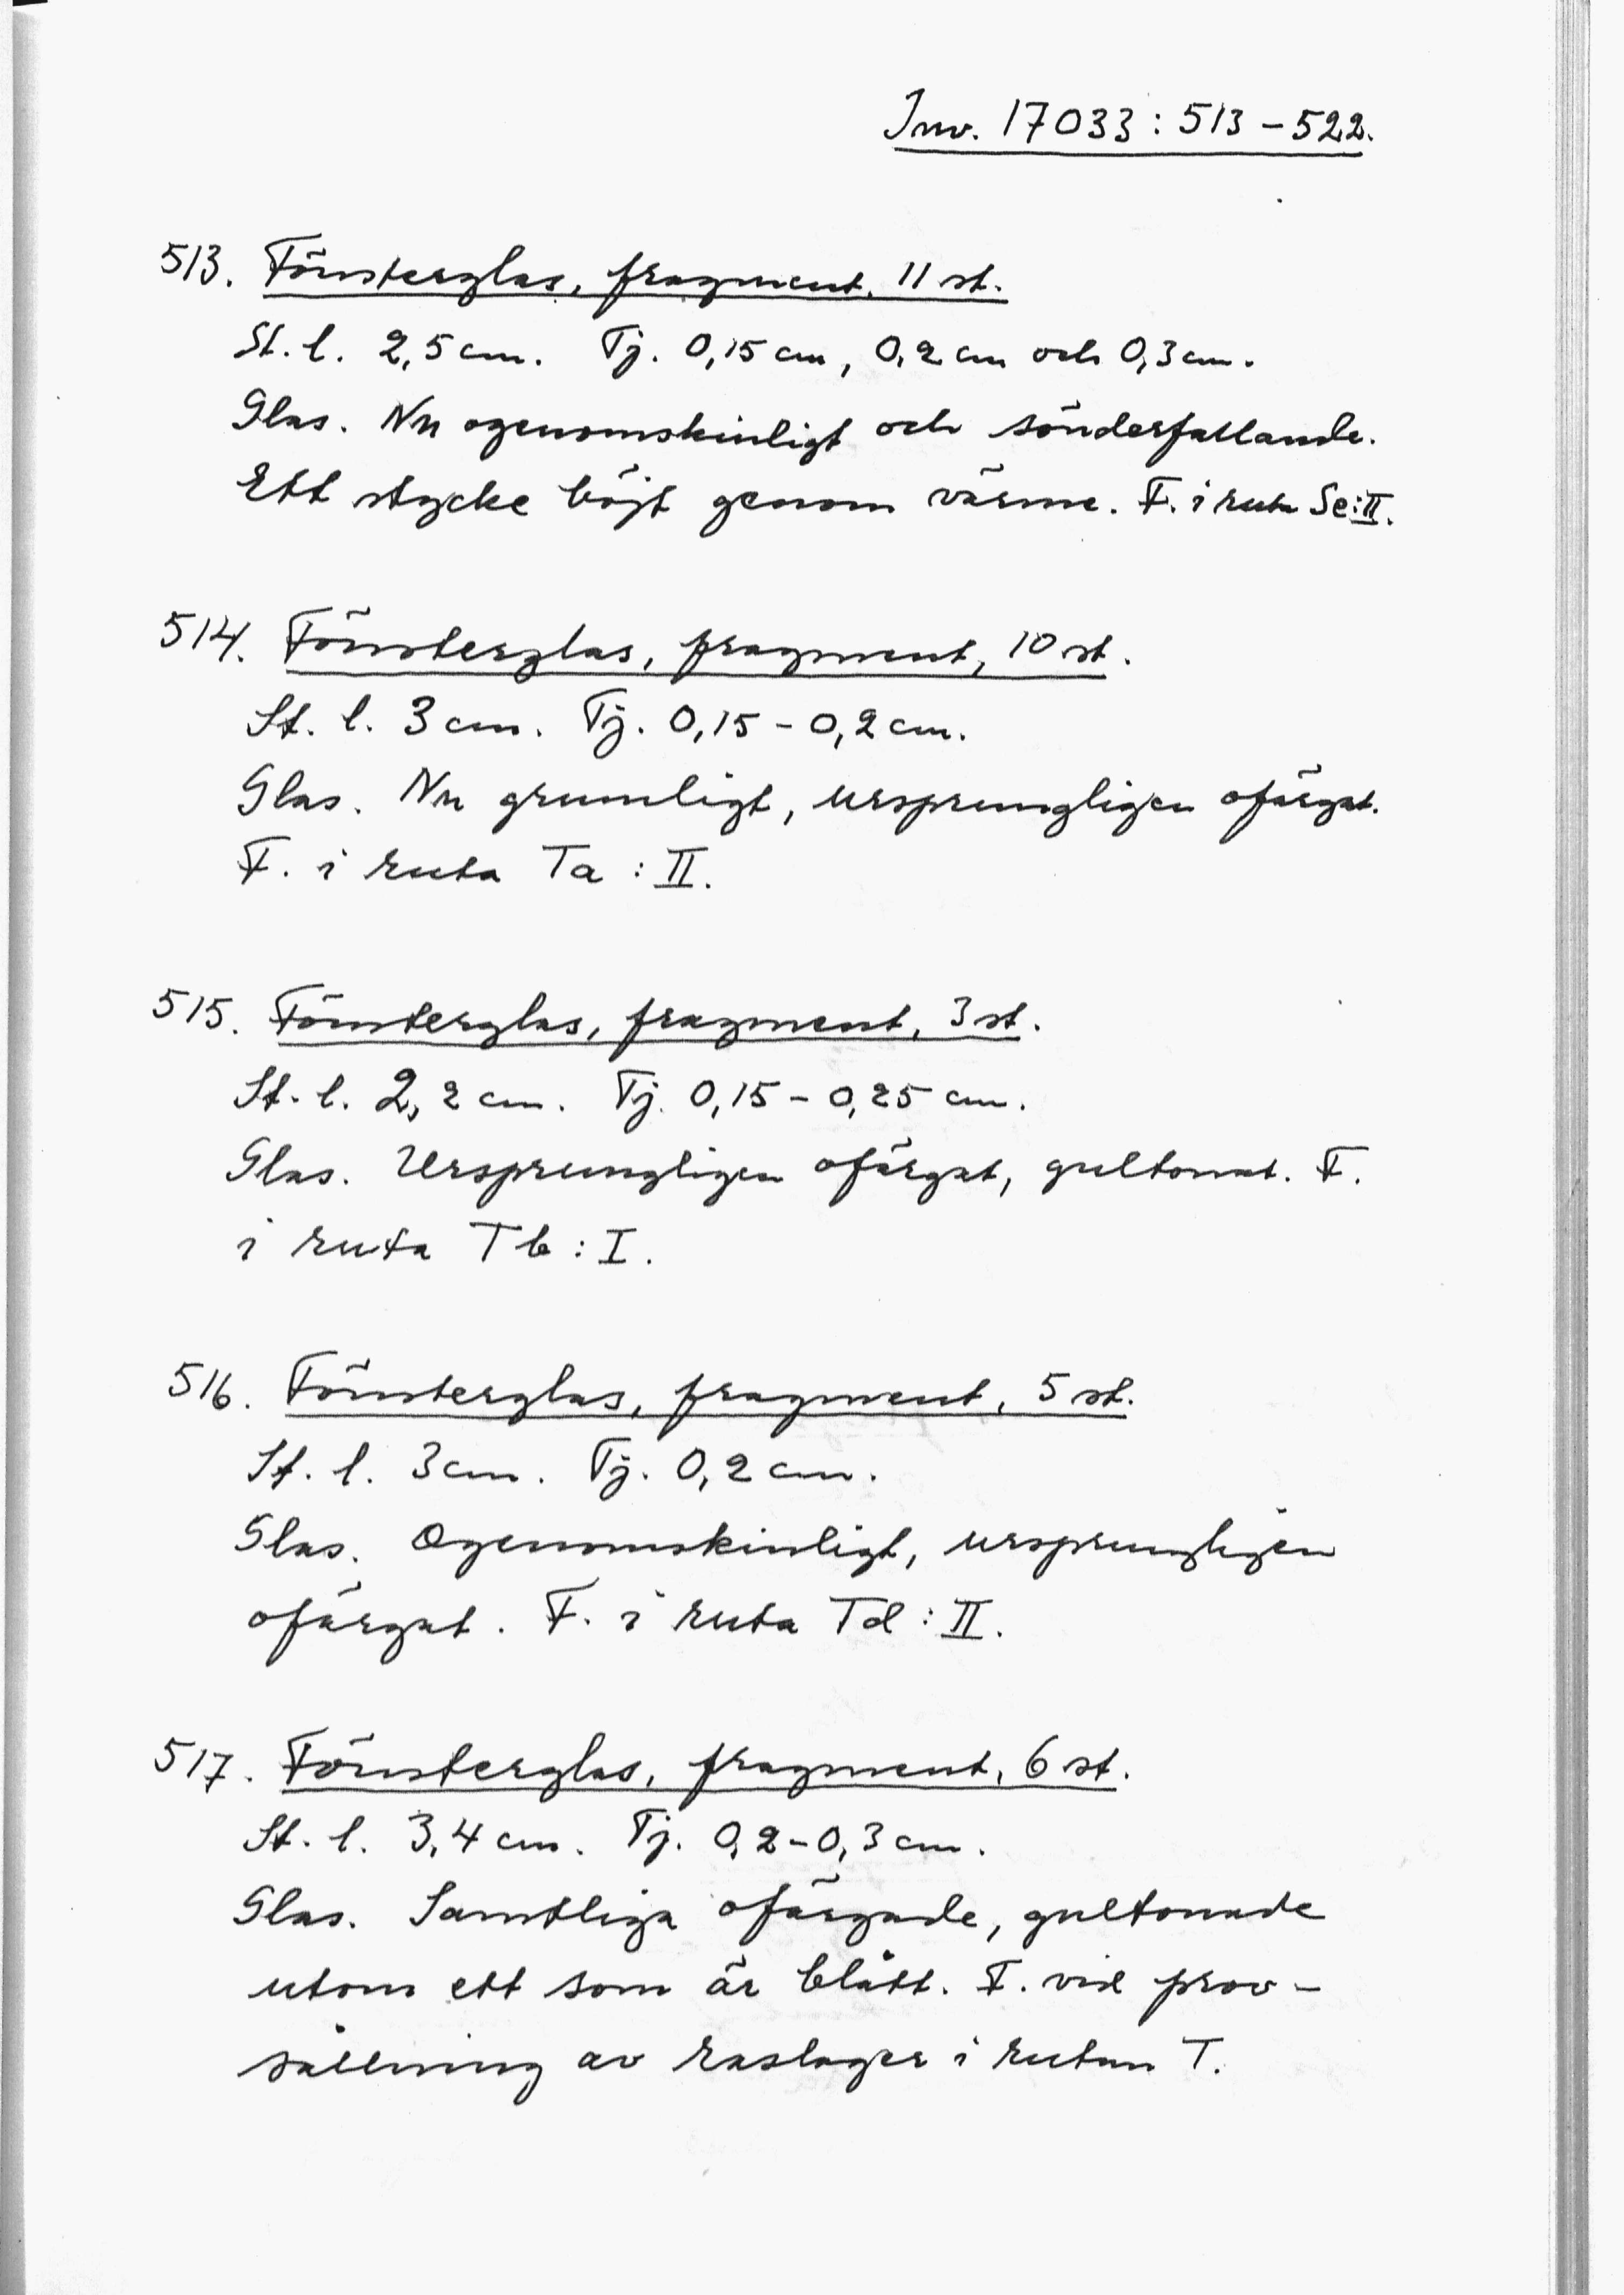 Inv. 17033:513-522.
513. Fönsterglas, fragment, 11 st.
St. l. 2,5 cm. Tj. 0,15 cm, 0,2 cm och 0,3 cm.
Glas. Nu ogenomskinligt och sönderfallande.
Ett stycke böjt genom värme. F. i ruta Se:II.
514. Fönsterglas, fragment, 10 st.
St. l. 3 cm. Tj. 0,15-0,2 cm.
Glas. Nu grumligt, ursprungligen ofärgat.
F. i ruta Ta:II.
515. Fönsterglas, fragment, 3 st.
St. l. 2,2 cm. Tj. 0,15-0,25 cm.
Glas. Ursprungligen ofärgat, gultonat. F.
i ruta Tb:I.
516. Fönsterglas, fragment, 5 st.
St. l. 3 cm. Tj. 0,2 cm.
Glas. Ogenomskinligt, ursprungligen
ofärgat. F. i ruta Td:II.
517. Fönsterglas, fragment, 6 st.
St. l. 3,4 cm. Tj. 0,2-0,3 cm.
Glas. Samtliga ofärgade, gultonade
utom ett som är blått. F. vid prov-
sållning av raslager i rutan T.